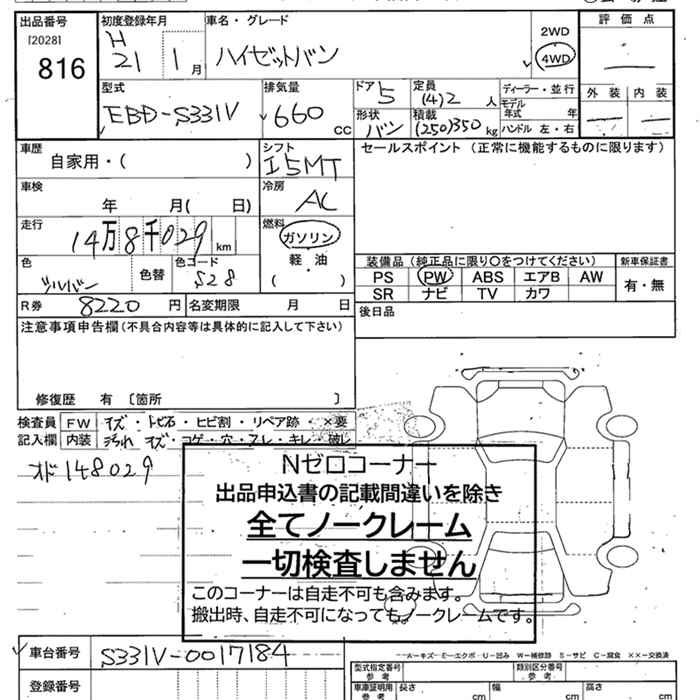 出品番号 初度登録年月 車名・グレード 評価点
[2028] H 2WD
816 21 1月 ハイゼットバン 4WD
型式 排気量 ドア 定員 ディーラー・並行 外装 内装
EBD-S331V 660cc 5 (4)2人 モデル年式 年
形状 積載
バン (250)350kg ハンドル 左・右
車歴 シフト セールスポイント(正常に機能するものに限ります)
自家用・( ) I5MT
車検 冷房
年 月( 日) AC
走行 燃料
14万8千029km ガソリン
軽・油
( )
色 色替 色コード 装備品(純正品に限り○をつけてください) 新車保証書
シルバー S28 PS PW ABS エアB AW 有・無
R券 8220円 名変期限 月 日 SR ナビ TV カワ
注意事項申告欄(不具合内容等は具体的に記入して下さい) 後日品
修復歴 有 〔箇所 〕
検査員 FW キズ・トビ石・ヒビ割・リペア跡・×要
記入欄 内装 汚れ キズ・コゲ・穴・スレ・キレ・破レ
オド148029
Nゼロコーナー
出品申込書の記載間違いを除き
全てノークレーム
一切検査しません
このコーナーは自走不可も含みます。
搬出時、自走不可になってもノークレームです。
A-キズ E-エクボ U-凹み W-補修跡 S-サビ C-腐食 XX-交換済
車台番号 S331V-0017184 型式指定番号 参考 類別区分番号 参考
登録番号 車庫証明用 参考 長さ cm 幅 cm 高さ cm